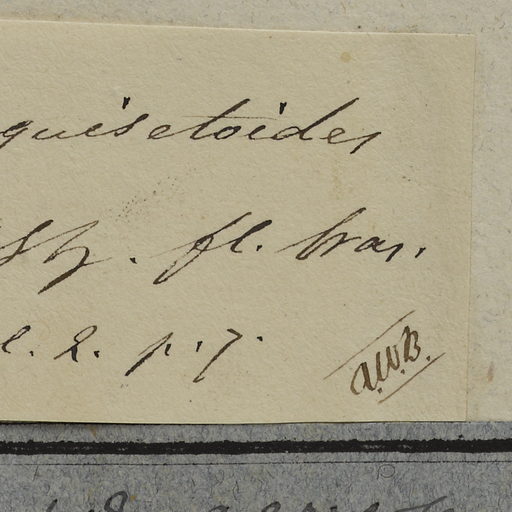 quisetoides
fl. bras.
2. p. 7.
A.W.B.